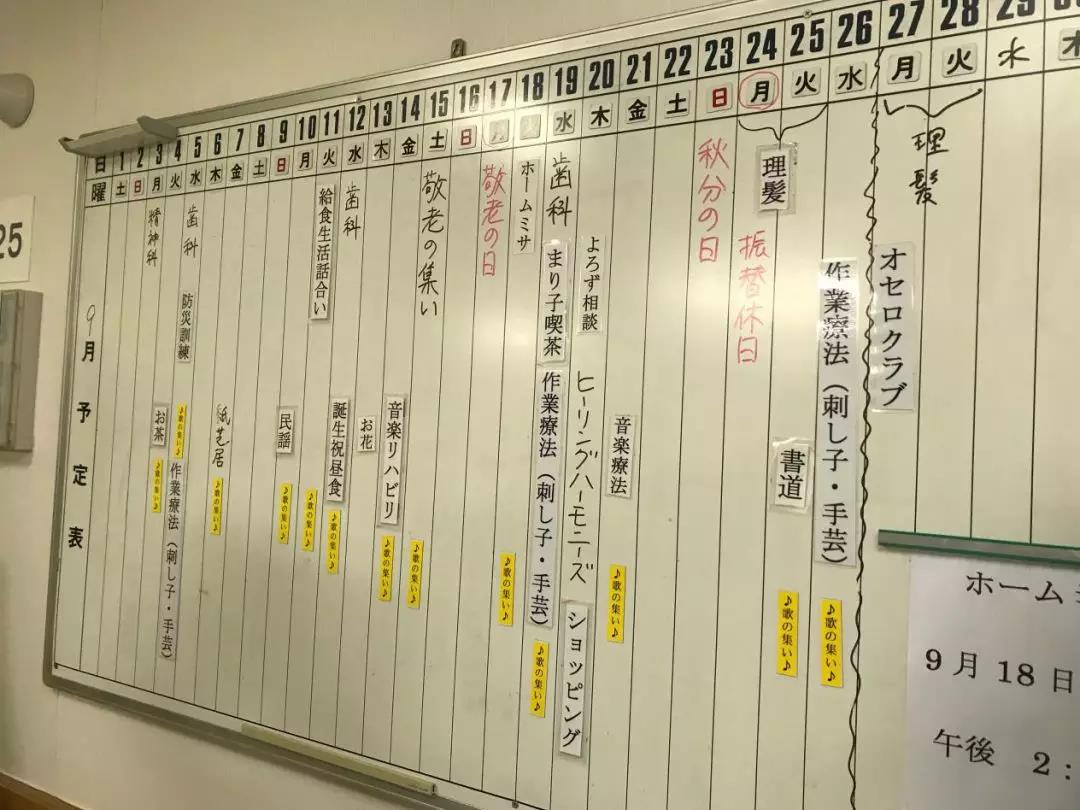 日 1 2 3 4 5 6 7 8 9 10 11 12 13 14 15 16 17 18 19 20 21 22 23 24 25 26 27 28 29
曜 土 日 月 火 水 木 金 土 日 月 火 水 木 金 土 日 月 火 水 木 金 土 日 月 火 水 月 火 水 木
9月予定表
精神科
お茶
♪歌の集い♪
♪歌の集い♪
作業療法(刺し子・手芸)
歯科
防災訓練
紙芝居
♪歌の集い♪
民謡
♪歌の集い♪
♪歌の集い♪
給食生活話合い
誕生祝昼食
♪歌の集い♪
歯科
お花
音楽リハビリ
♪歌の集い♪
♪歌の集い♪
敬老の集い
敬老の日
♪歌の集い♪
ホームミサ
作業療法(刺し子・手芸)
♪歌の集い♪
歯科
まり子喫茶
ヒーリングハーモニーズ
ショッピング
よろず相談
音楽療法
♪歌の集い♪
秋分の日
振替休日
理髪
書道
♪歌の集い♪
作業療法(刺し子・手芸)
♪歌の集い♪
オセロクラブ
理髪
25
ホーム
9月18日
午後 2: